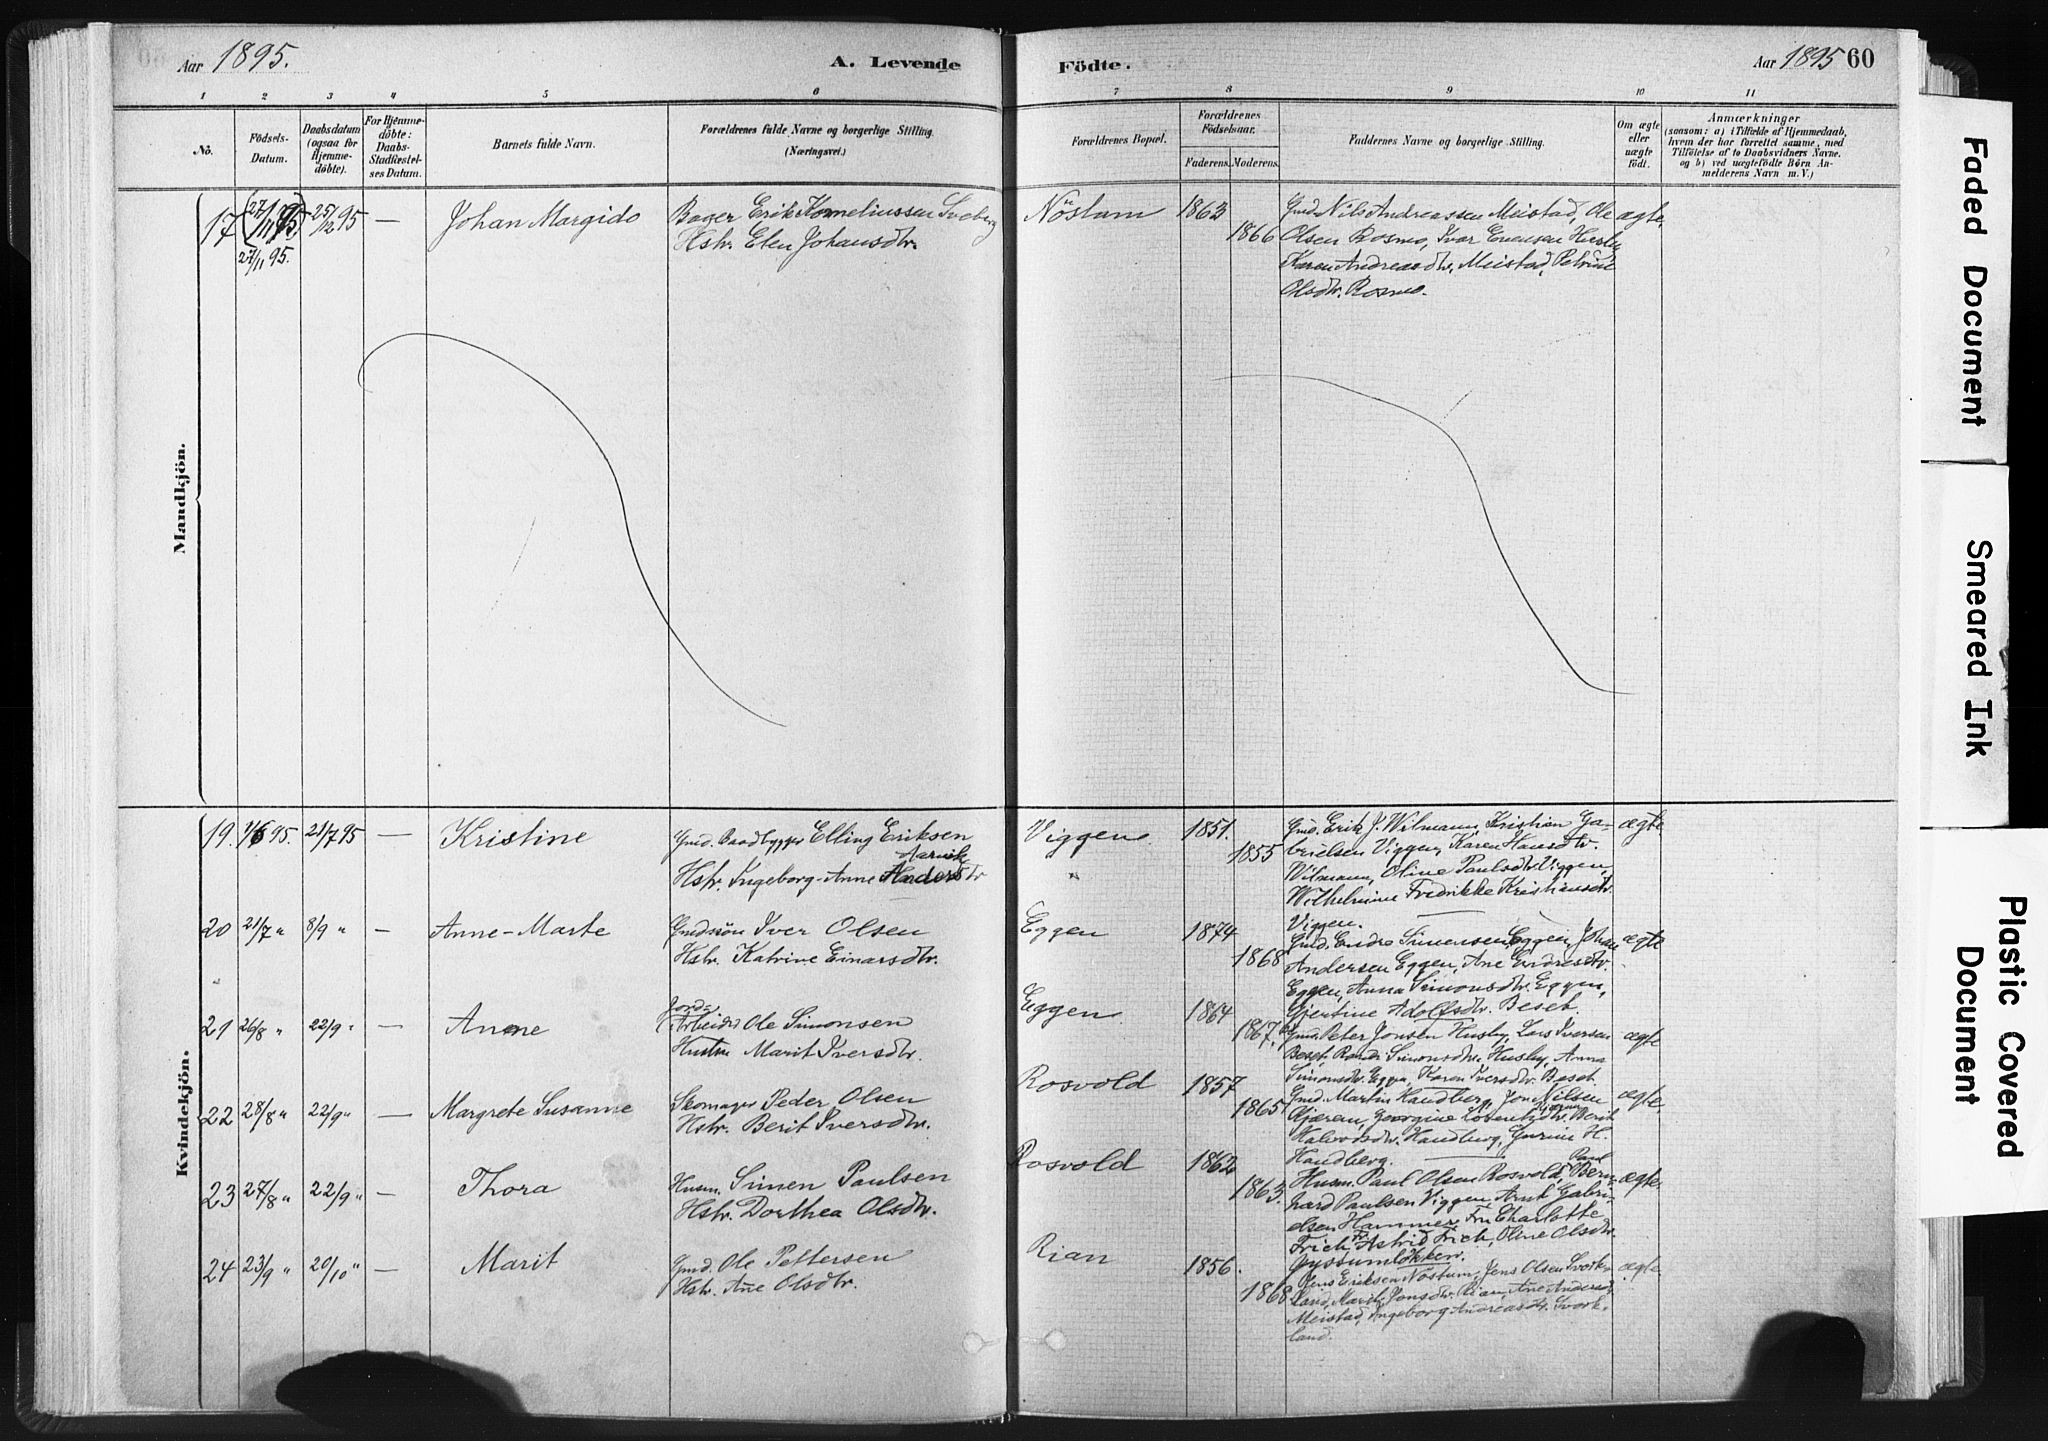 Aar 1895.
A. Levende
Födte.
Aar 1895 60
1 2 3 4 5 6 7 8 9 10 11
Nö.
Födsels-
Datum.
Daabsdatum
(ogsaa for
Hjemme-
döbte).
For Hjemme-
döbte:
Daabs-
Stadfæstel-
ses Datum.
Barnets fulde Navn.
Forældrenes fulde Navne og borgerlige Stilling.
(Næringsvei.)
Forældrenes Bopæl.
Forældrenes
Födselsaar.
Faderens. Moderens.
Faddernes Navne og borgerlige Stilling.
Om ægte
eller
uægte
födt.
Anmærkninger
(saasom: a) i Tilfælde af Hjemmedaab,
hvem der har forrettet samme, med
Tilföielse af to Daabsvidners Navne.
og b) ved uægtefödte Börn An-
melderens Navn m. V.)
Mandkjön.
17 27/11 95. 25/12 95 — Johan Margido
Bager Erik Korneliussen Sveberg
Hstr. Elen Johansdtr.
Nöstum 1863
1866
Gmd. Nils Andreassen Meistad, Ole
Olsen Rosmo, Ivar Evensen
Karen Andreasdtr. Meistad, Petrine
Olsdtr. Rosmo.
ægte.
Kvindekjön.
19. 1/6 95. 21/7 95 — Kristine
Gmd. Baadbygger Elling Eriksen
Hstr. Ingeborg-Anne
Viggen 1851.
1855
Gmd. Erik J. Wilmann, Kristian Ga-
brielsen Viggen, Karen Hansdtr.
Wilmann, Oline Paulsdtr. Viggen,
Wilhelmine Fredrikke Kristiansdtr.
Viggen.
ægte
20 21/7 " 8/9 " — Anne-Marte
Gmdssön Iver Olsen
Hstr. Katrine Einarsdtr.
Eggen 1874
1868
Gmd. Endre Simensen Eggen, Johan
Andersen Eggen, Ane Endresdtr.
Eggen, Anna Simonsdtr. Eggen,
Gjertine Adolfsdtr. Beseb.
ægte
21 26/8 " 22/9 " — Anne
Jordb.
Arbeider Ole Simonsen
Hustru Marit Iversdtr.
Eggen 1864
1867.
Gmd. Peter Jonsen Husby, Lars Iversen
Simonsdtr. Husby, Anna
Simonsdtr. Eggen, Karen Iversdtr.
ægte
22 28/8 " 22/9 " — Margrete Susanne
Skomager Peder Olsen
Hstr. Berit Iversdtr.
Rosvold 1857
1865
Gmd. Martin Handberg, Jon Nilsen
Kjæren, Georgine Berit
Halvorsdtr. Handberg, Gurine H.
Handberg.
ægte
23 27/8 " 22/9 " — Thora
Husm. Simen Paulsen
Hstr. Dorthea Olsdtr.
Rosvold 1862
1863.
Husm. Paul Olsen Rosvold, Paul Bern-
hard Paulsen Viggen, Arnt Gabri-
elsen Hammer, Fru Charlotte
Frich, Fr. Astrid Frich, Oline Olsdtr.
ægte.
24 23/9 " 20/10 " — Marit
Gmd. Ole Pettersen
Hstr. Ane Olsdtr.
Rian 1856.
1868
Jens Eriksen Nöstum, Jens Olsen Svork-
land, Marit Jonsdtr. Rian, Ane Andersd.
Meistad, Ingeborg Andreasdtr. Svork-
land.
ægte
Faded Document
Smeared Ink
Plastic Covered
Document